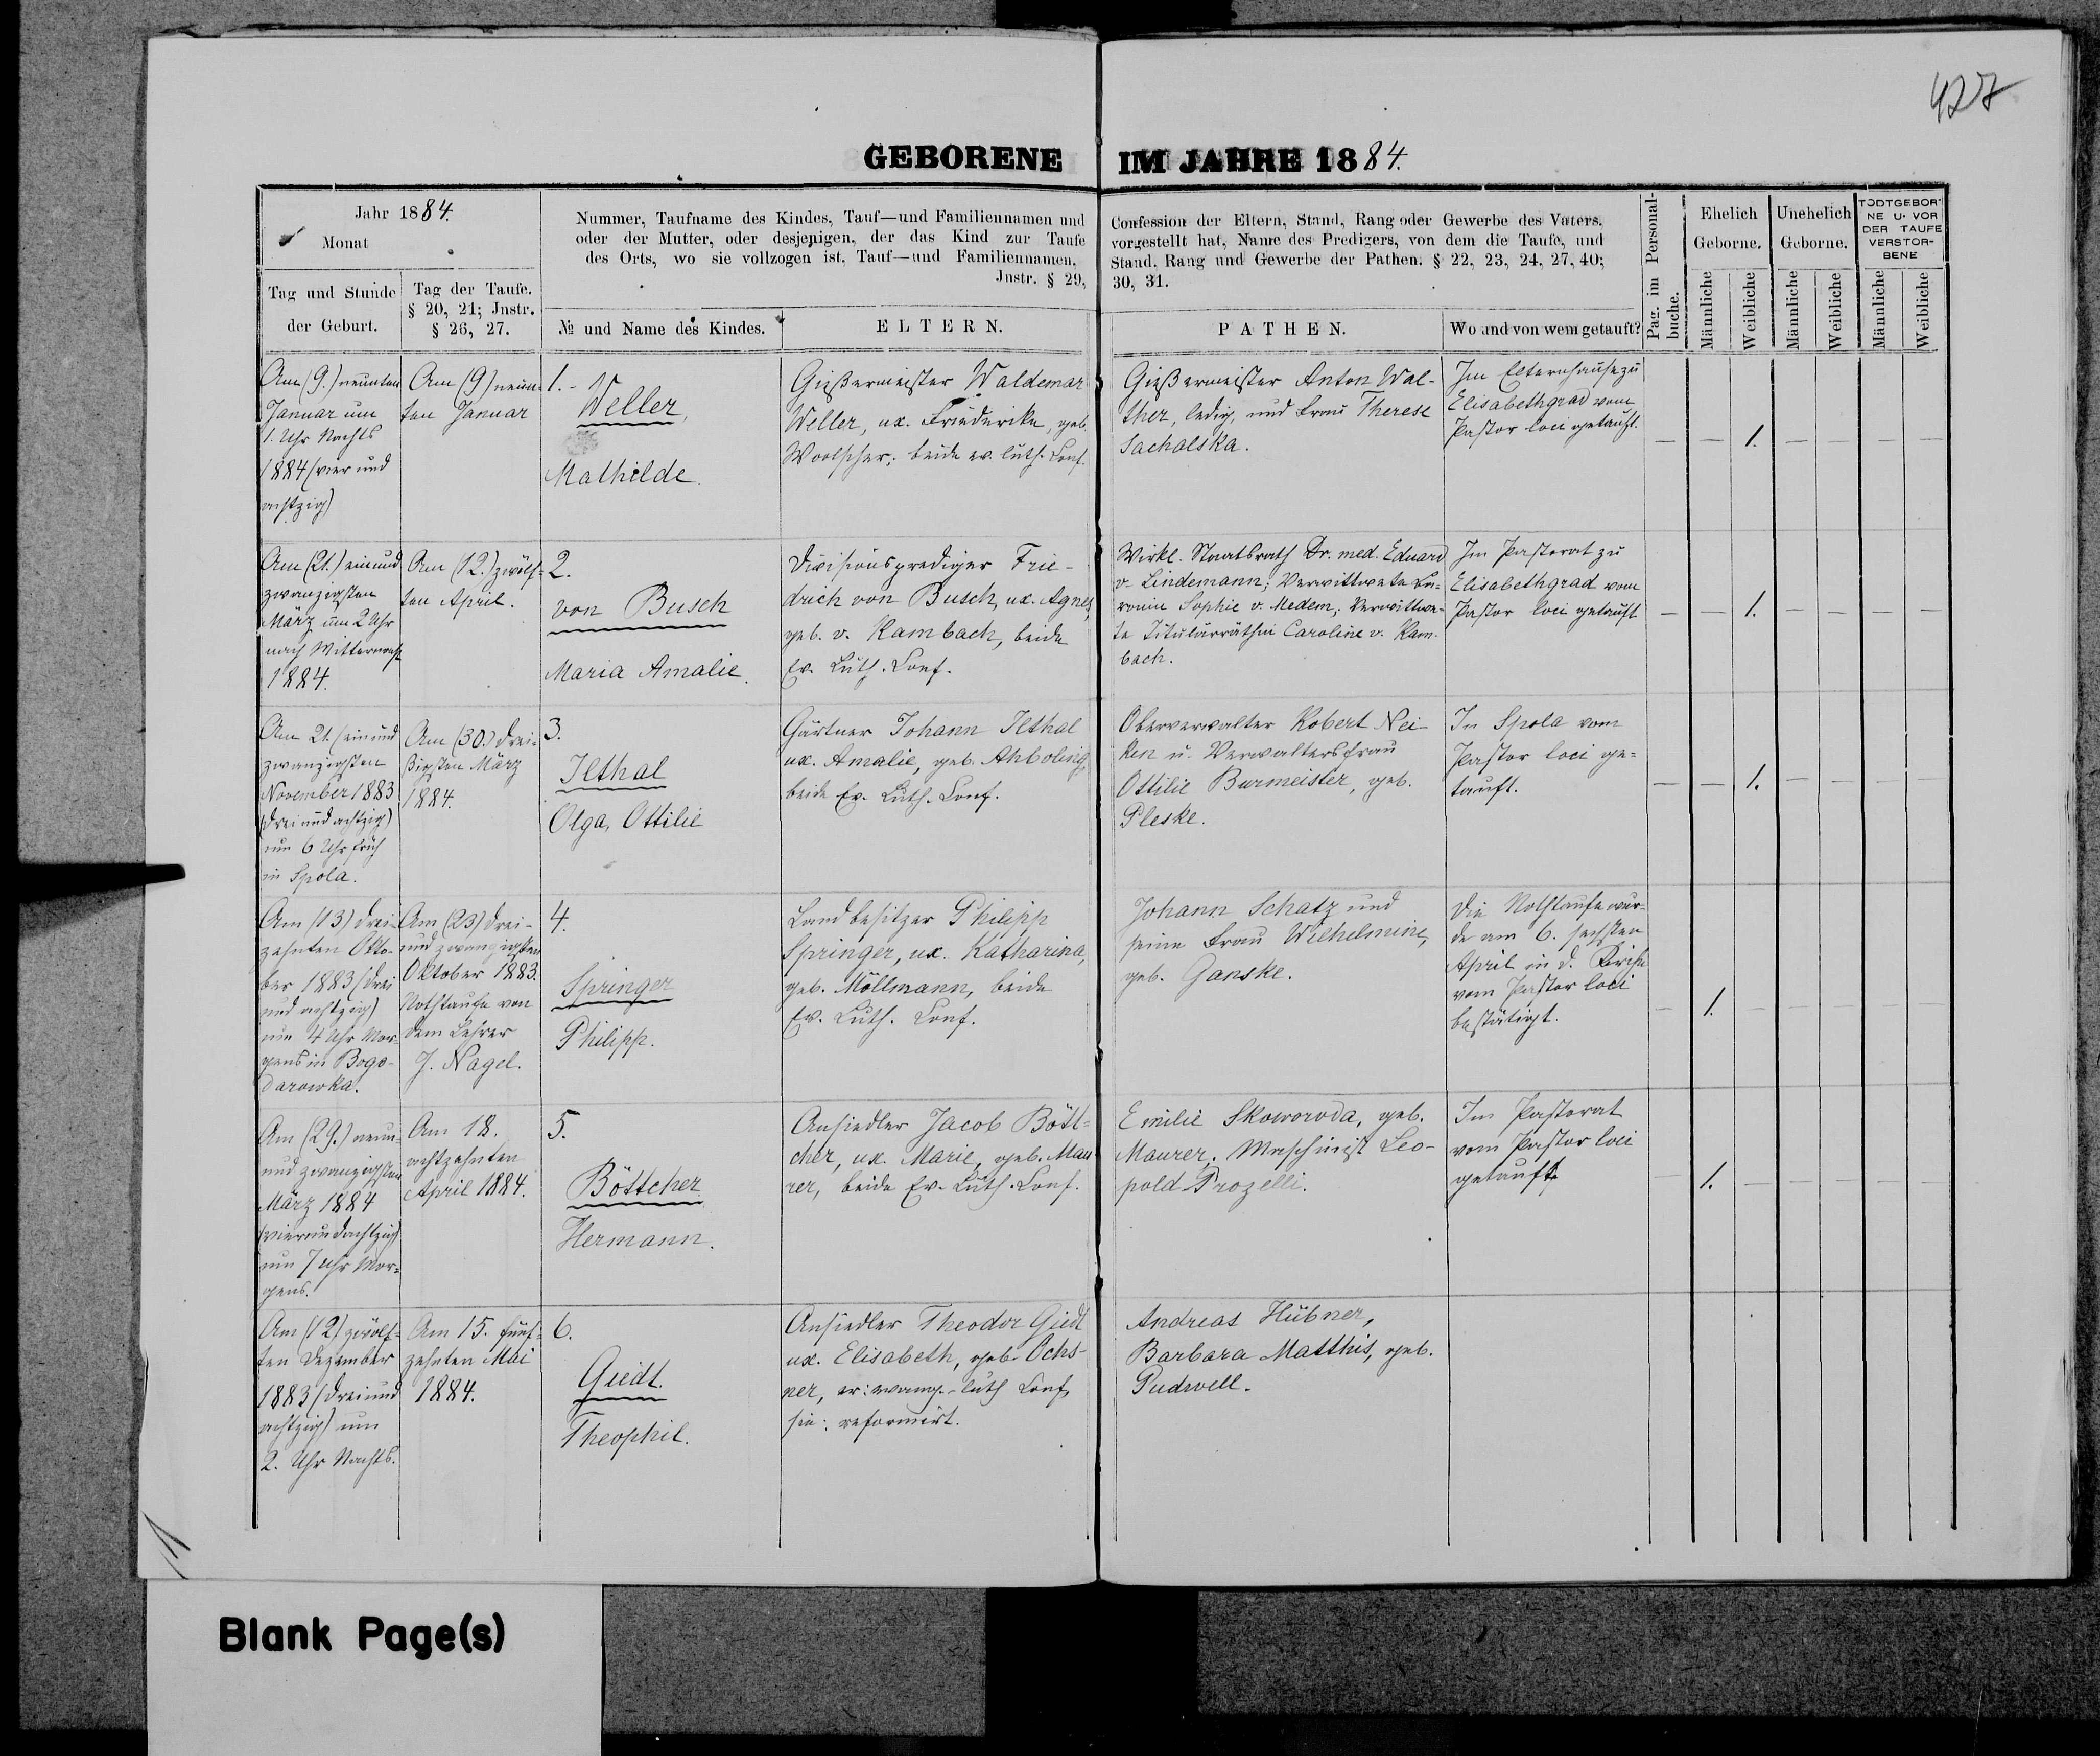 427
GEBORENE IM JAHRE 1884.
Jahr 1884.
Monat
Tag und Stunde
der Geburt.
Tag der Taufe.
§ 20, 21; Jnstr.
§ 26, 27.
Nummer, Taufname des Kindes, Tauf—und Familiennamen und
oder der Mutter, oder desjenigen, der das Kind zur Taufe
des Orts, wo sie vollzogen ist, Tauf—und Familiennamen,
Jnstr. § 29,
№ und Name des Kindes.
ELTERN.
Confession der Eltern, Stand, Rang oder Gewerbe des Vaters,
vorgestellt hat, Name des Predigers, von dem die Taufe, und
Stand, Rang und Gewerbe der Pathen. § 22, 23, 24, 27, 40;
30, 31.
PATHEN.
Wo und von wem getauft?
Pag. im Personal-
buche.
Ehelich
Geborne.
Unehelich
Geborne.
TODTGEBOR-
NE U. VOR
DER TAUFE
VERSTOR-
BENE
Männliche
Weibliche
Männliche
Weibliche
Männliche
Weibliche
Am (9.) neunten
Januar um
1. Uhr Nachts
1884 (vier und
achtzig)
Am (9) neun-
ten Januar
1.
Weller,
Mathilde.
Gießermeister Waldemar
Weller, ux. Friederike, geb.
beide ev. luth. Conf.
Gießermeister Anton Wal-
ther, ledig, und Frau Therese
Sacholska.
Im Elternhause zu
Elisabethgrad vom
Pastor loci getauft.
— — 1. — — — —
Am (21.) einund
zwanzigsten
März um 2 Uhr
nach Mitternacht
1884.
Am (12.) zwölf-
ten April.
2.
von Busch
Maria Amalie.
Divisionsprediger Frie-
drich von Busch, ux. Agnes,
geb. v. Kambach, beide
Ev. Luth. Conf.
Wirkl. Staatsrath Dr. med. Eduard
v. Lindemann; Verwittwete Ba-
ronin Sophie v. Medem; Verwittwe-
te Titulärräthin Caroline v. Kam-
bach.
Im Pastorat zu
Elisabethgrad vom
Pastor loci getauft
— — 1. — — — —
Am 21. (einund
zwanzigsten
November 1883
(drei und achtzig)
um 6 Uhr früh
in Spola.
Am (30.) drei-
ßigsten März
1884.
3.
Ilthal
Olga, Ottilie
Gärtner Johann Ilthal
ux. Amalie, geb.
beide Ev. Luth. Conf.
Oberverwalter Robert Nei-
ken u. Verwaltersfrau
Ottilie Burmeister, geb.
Pleske.
In Spola vom
Pastor loci ge-
tauft.
— — 1. — — — —
Am (13) drei-
zehnten Okto-
ber 1883 (drei
und achtzig)
um 4 Uhr Mor-
gens in Bogo-
darowka.
Am (23) drei-
und zwanzigsten
Oktober 1883.
Nothtaufe von
dem Lehrer
J. Nagel.
4.
Springer
Philipp.
Landbesitzer Philipp
Springer, ux. Katharina,
geb. Möllmann, beide
Ev. Luth. Conf.
Johann Schatz und
seine Frau Wilhelmine,
geb. Ganske.
Die Nothtaufe wur-
de am 6. sechsten
April in d. Kirche
vom Pastor loci
bestätigt.
— 1. — — — — —
Am (29.) neun-
und zwanzigsten
März 1884
(vierundachtzig)
um 7 Uhr Mor-
gens.
Am 18.
achtzehnten
April 1884.
5.
Böttcher
Hermann.
Ansiedler Jacob Bött-
cher, ux. Marie, geb. Mau
rer, beide Ev. Luth. Conf.
Emilie Skoworoda, geb.
Maurer. Maschinist Leo-
pold Prozelli.
Im Pastorat
vom Pastor loci
getauft.
— 1. — — — — —
Am (12) zwölf-
ten Dezember
1883 (dreiund
achtzig) um
2. Uhr Nachts.
Am 15. fünf-
zehnten Mai
1884.
6.
Giedt.
Theophil.
Ansiedler Theodor Giedt
ux. Elisabeth, geb. Ochs-
ner, er: evang.-luth Conf,
sie: reformirt.
Andreas Hübner,
Barbara Matthis, geb.
Pudwell.
Blank Page(s)